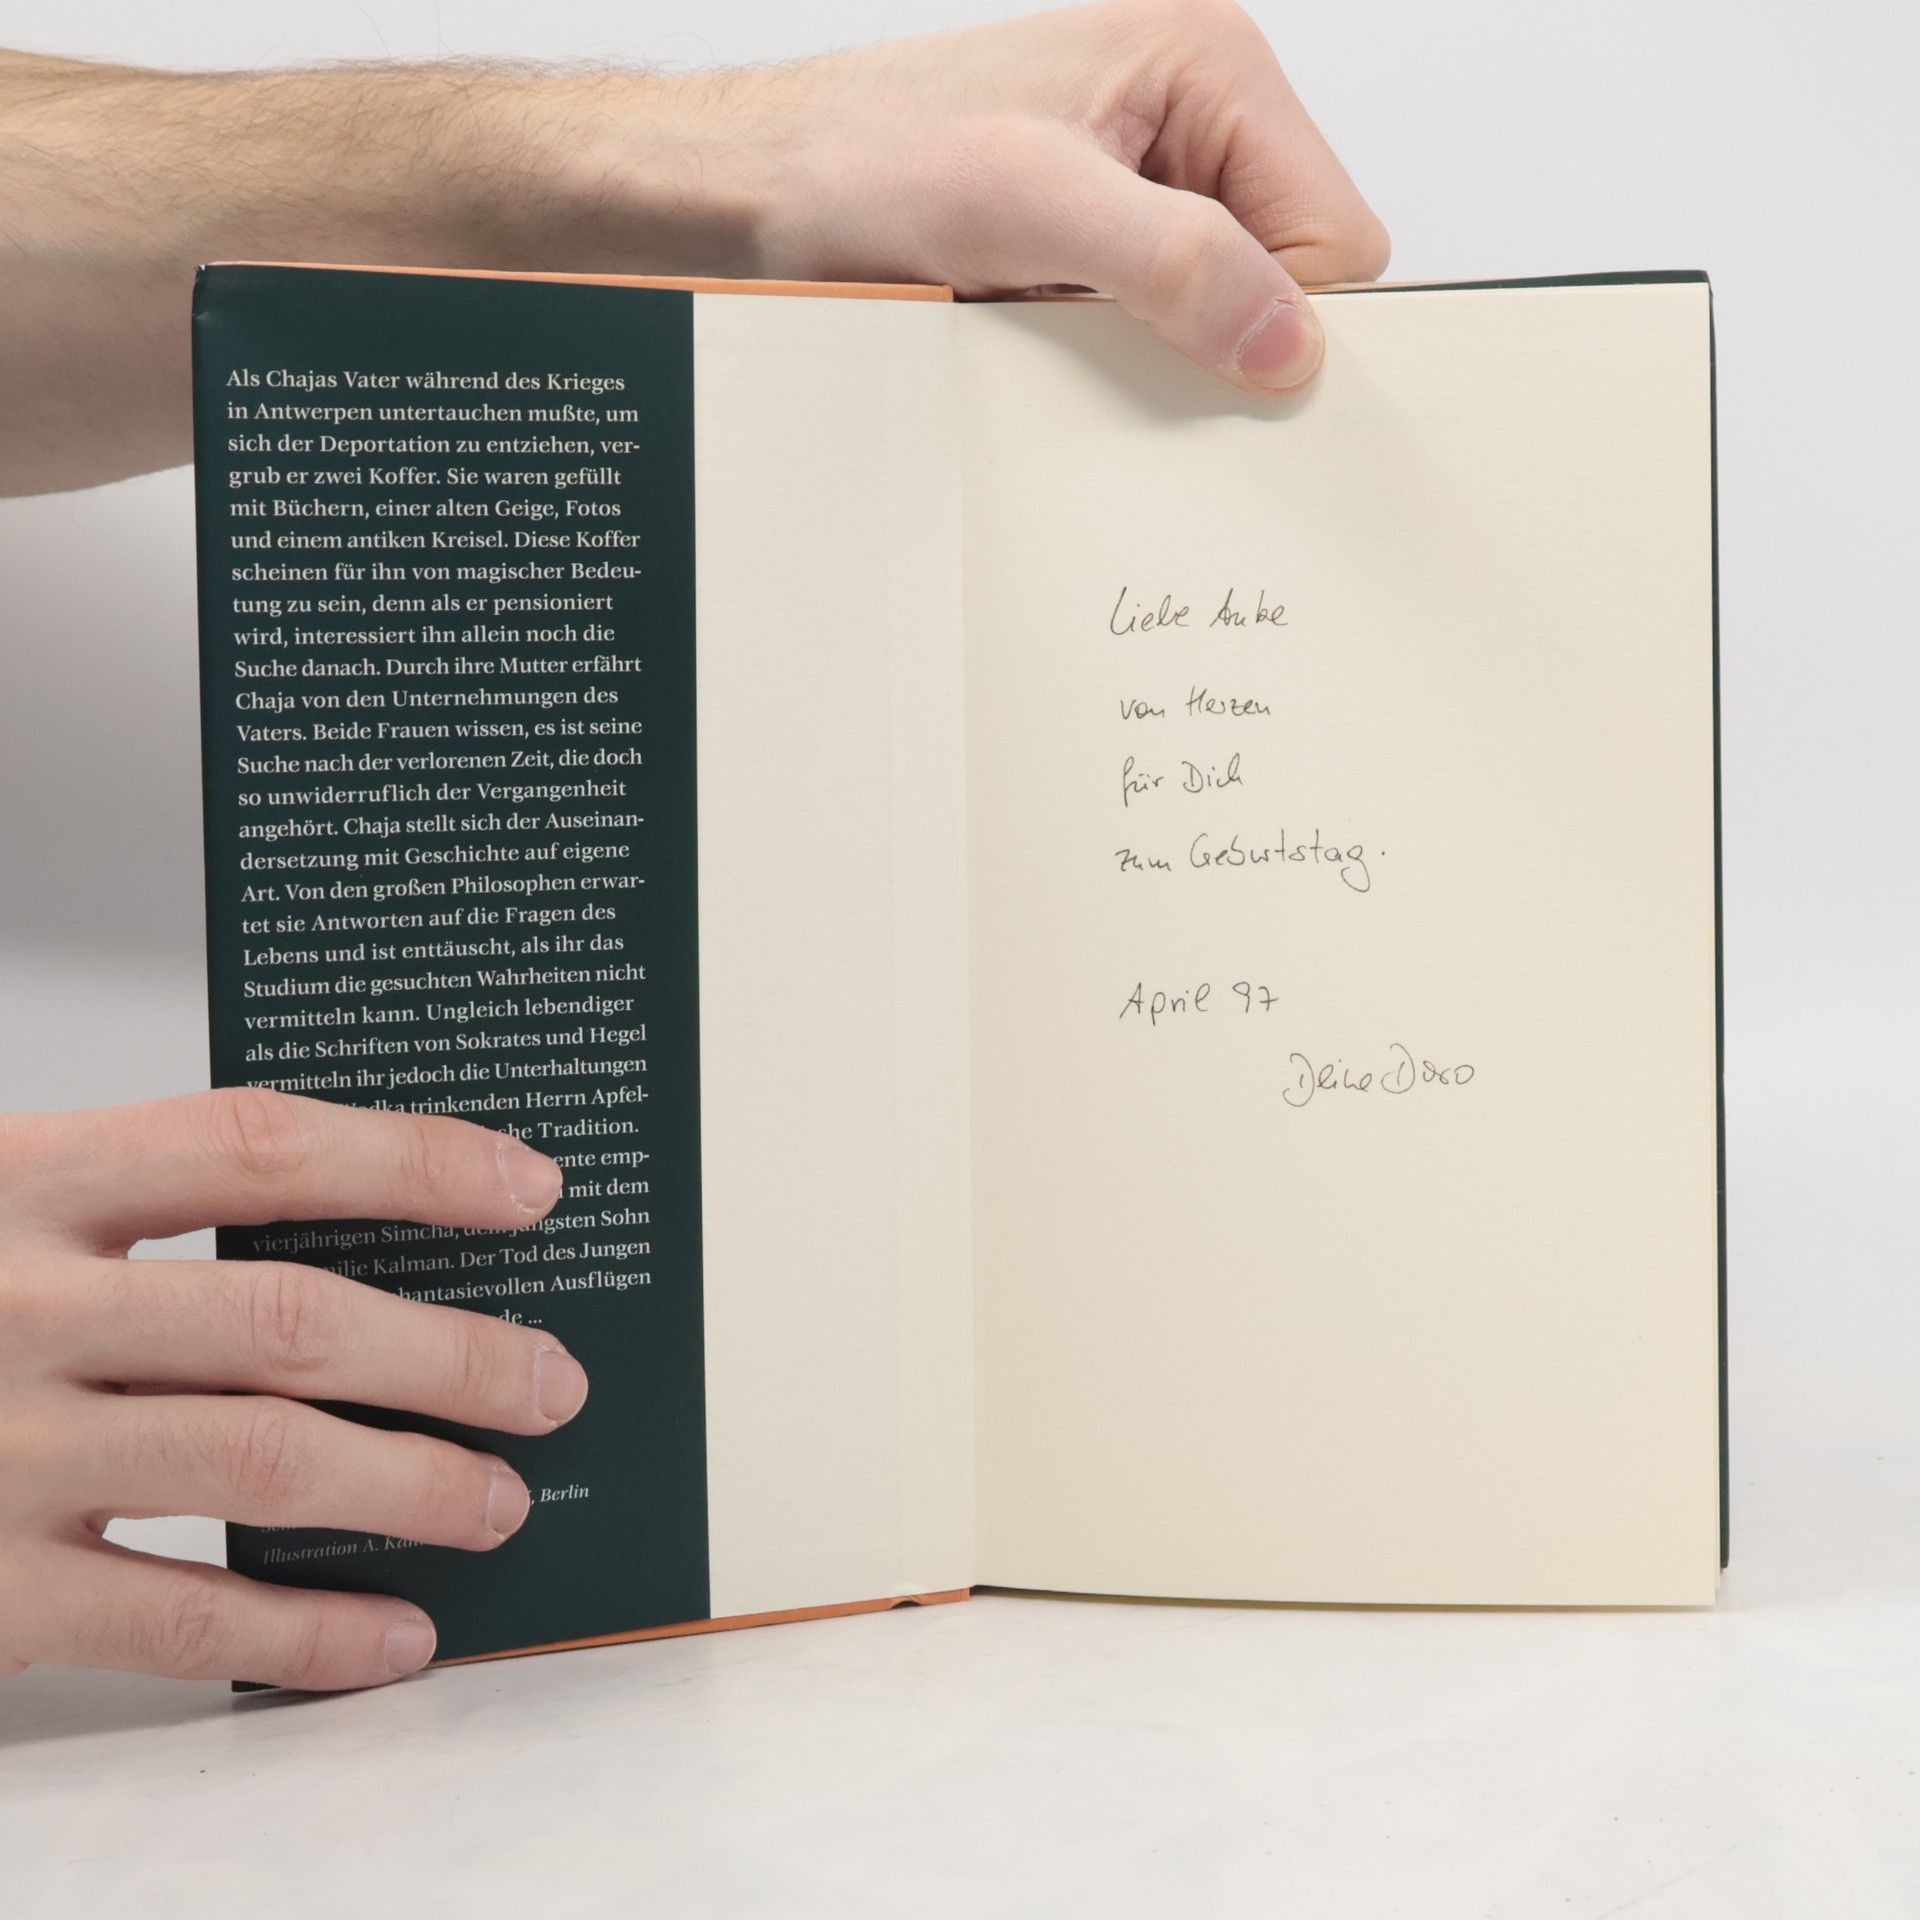 Als Chajas Vater während des Krieges
in Antwerpen untertauchen mußte, um
sich der Deportation zu entziehen, ver-
grub er zwei Koffer. Sie waren gefüllt
mit Büchern, einer alten Geige, Fotos
und einem antiken Kreisel. Diese Koffer
scheinen für ihn von magischer Bedeu-
tung zu sein, denn als er pensioniert
wird, interessiert ihn allein noch die
Suche danach. Durch ihre Mutter erfährt
Chaja von den Unternehmungen des
Vaters. Beide Frauen wissen, es ist seine
Suche nach der verlorenen Zeit, die doch
so unwiderruflich der Vergangenheit
angehört. Chaja stellt sich der Auseinan-
dersetzung mit Geschichte auf eigene
Art. Von den großen Philosophen erwar-
tet sie Antworten auf die Fragen des
Lebens und ist enttäuscht, als ihr das
Studium die gesuchten Wahrheiten nicht
vermitteln kann. Ungleich lebendiger
als die Schriften von Sokrates und Hegel
vermitteln ihr jedoch die Unterhaltungen
trinkenden Herrn Apfel-
Tradition.
emp-
mit dem
vierjährigen Simcha, dem jüngsten Sohn
Kalman. Der Tod des Jungen
Ausflügen
...
, Berlin
Illustration A.
Liebe Anke
von Herzen
für Dich
zum Geburtstag.
April 97
Deine Doro